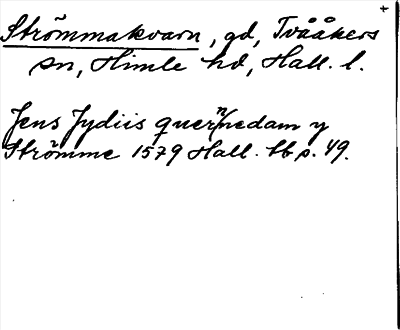 Strömmakvarn, gd, Tvååkers
sn, Himle hd, Hall. l.
Jens Jydiis quern/nedam y
Strömme 1579 Hall. tb s. 49.